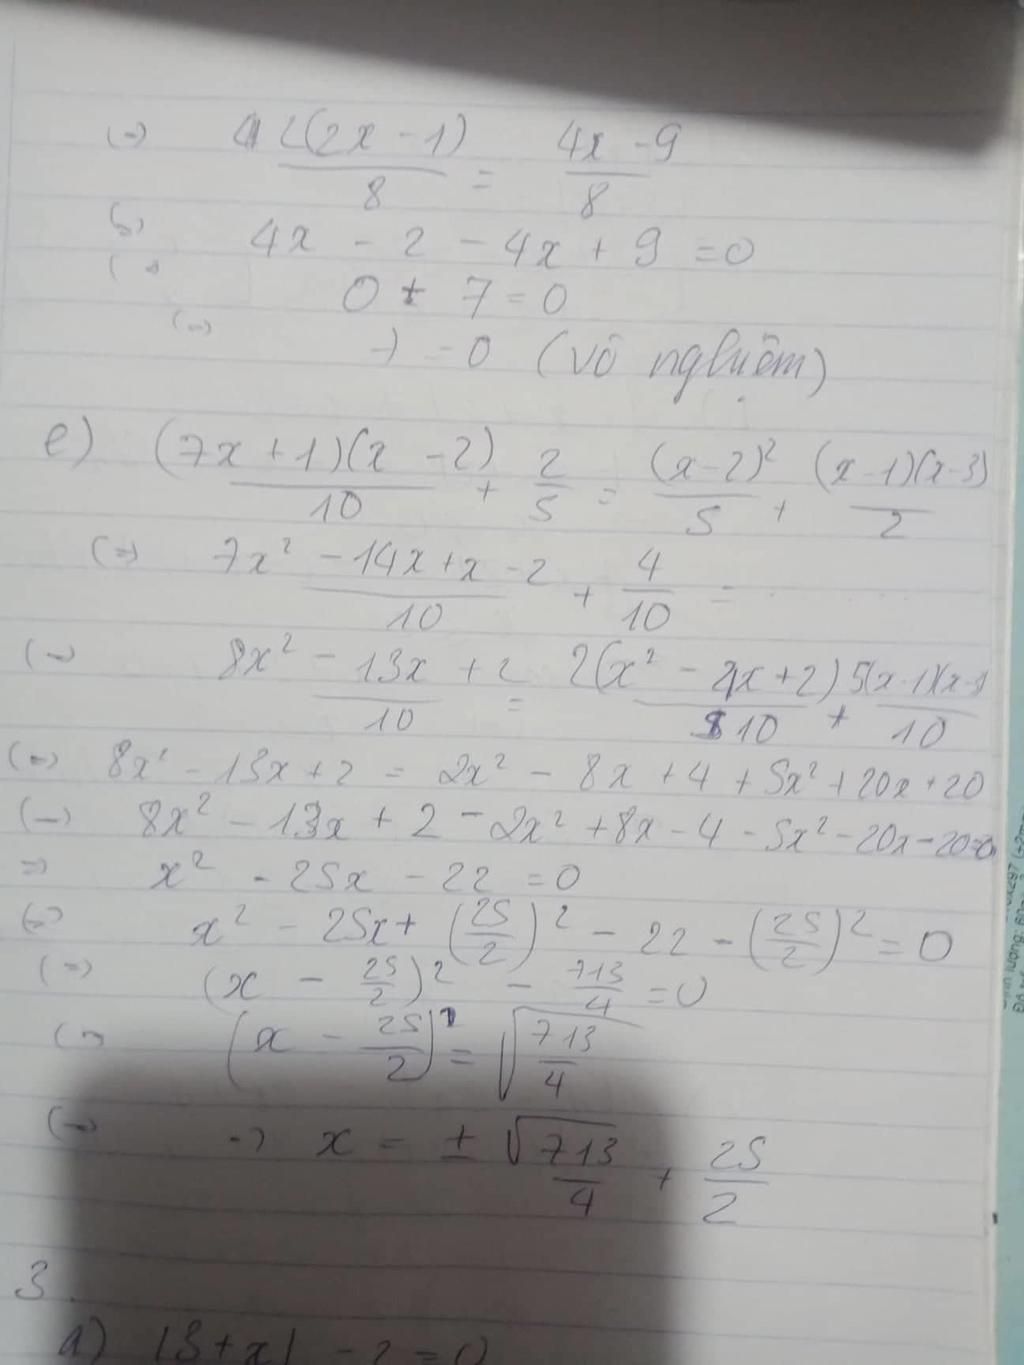 (=) 2(2x - 1)/8 = 4x - 9/8
(=) 4x - 2 - 4x + 9 = 0
(=) 0 + 7 = 0
(=) 7 = 0 (vô nghiệm)
e) (7x + 1)(x - 2)/10 + 2/5 = (x - 2)²/5 + (x - 1)(x - 3)/2
(=) 7x² - 14x + x - 2/10 + 4/10 =
(=) 8x² - 13x + 2/10 = 2(x² - 4x + 2)/10 + 5(x - 1)(x - 3)/10
(=) 8x² - 13x + 2 = 2x² - 8x + 4 + 5x² + 20x + 20
(=) 8x² - 13x + 2 - 2x² + 8x - 4 - 5x² - 20x - 20 = 0
=) x² - 25x - 22 = 0
(=) x² - 25x + (25/2)² - 22 - (25/2)² = 0
(=) (x - 25/2)² - 713/4 = 0
(=) (x - 25/2)² = √713/4
(=) => x = ± √713/4 + 25/2
3.
a) |3 + x| - 2 = 0